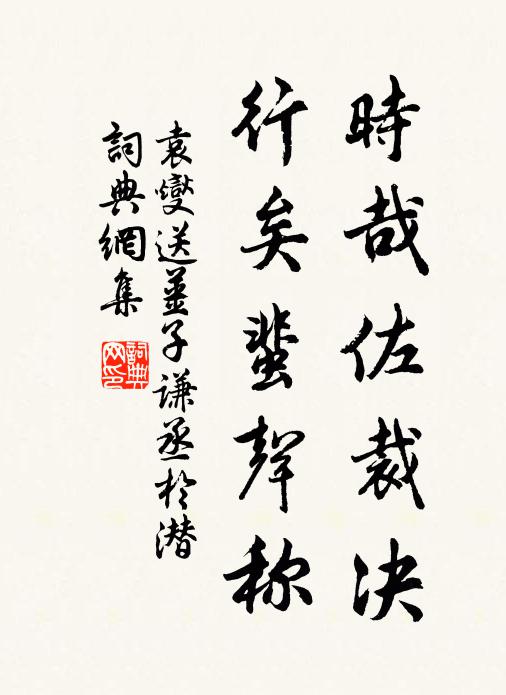 時哉佐裁决
行矣蜚聲称
袁燮送姜子謙丞於潜
詞典網集
詞典網印